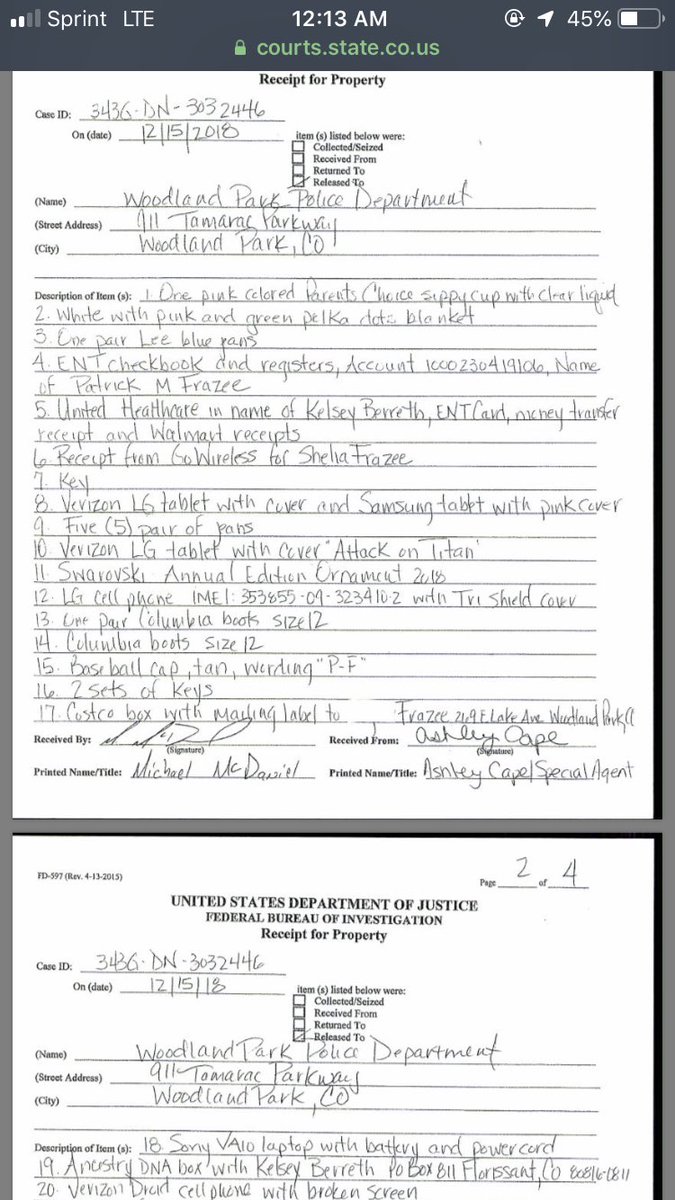 Sprint LTE 12:13 AM 45%
courts.state.co.us
Receipt for Property
Case ID: 343G-DN-3032446
On (date) 12/15/2018
item (s) listed below were:
Collected/Seized
Received From
Returned To
Released To
(Name) Woodland Park Police Department
(Street Address) 911 Tamarac Parkway
(City) Woodland Park, CO
Description of Item (s): 1. One pink colored Parents Choice sippy cup with clear liquid
2. White with pink and green polka dots blanket
3. One pair Lee blue pans
4. ENT checkbook and registers, Account 1000230419106, Name
of Patrick M Frazee
5. United Healthcare in name of Kelsey Berreth, ENT Card, money transfer
receipt and Walmart receipts
6. Receipt from GoWireless for Shelia Frazee
7. Key
8. Verizon LG tablet with cover and Samsung tablet with pink cover
9. Five (5) pair of pans
10. Verizon LG tablet with cover "Attack on Titan"
11. Swarovski Annual Edition Ornament 2018
12. LG Cell phone IMEI: 353855-09-323410-2 with Tri Shield cover
13. One pair Columbia boots size 12
14. Columbia boots size 12
15. Baseball cap, tan, wording "P-F"
16. 2 sets of keys
17. Costco box with mailing label to Frazee 2169 E Lake Ave Woodland Park, CO
Received By: Received From: Ashley Cape
(Signature) (Signature)
Printed Name/Title: Michael McDaniel Printed Name/Title: Ashley Cape/Special Agent
FD-597 (Rev. 4-13-2015) Page 2 of 4
UNITED STATES DEPARTMENT OF JUSTICE
FEDERAL BUREAU OF INVESTIGATION
Receipt for Property
Case ID: 343G-DN-3032446
On (date) 12/15/18
item (s) listed below were:
Collected/Seized
Received From
Returned To
Released To
(Name) Woodland Park Police Department
(Street Address) 911 Tamarac Parkway
(City) Woodland Park, CO
Description of Item (s): 18. Sony VAIO laptop with battery and power cord
19. Ancestry DNA box with Kelsey Berreth PO Box 811 Florissant, CO 80816-0811
20. Verizon Droid cell phone with broken screen